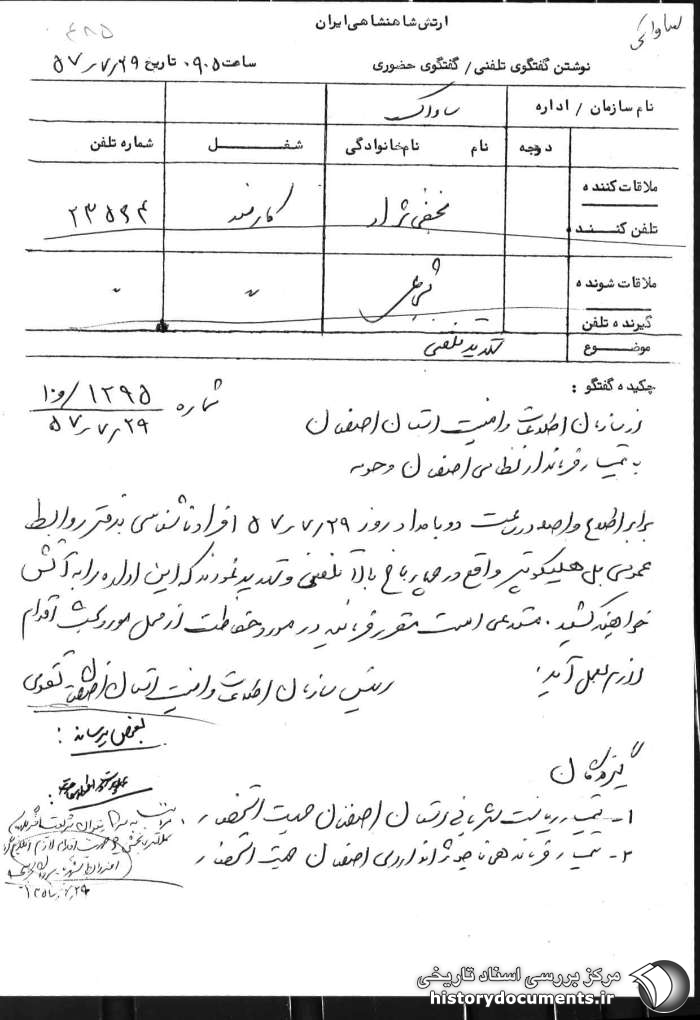 ساواکی
۴۸۵
ارتش شاهنشاهی ایران
نوشتن گفتگوی تلفنی / گفتگوی حضوری ساعت ۰۹۰۵ تاریخ ۵۷/۷/۲۹
نام سازمان / اداره ساواک
درجه نام نام خانوادگی شغل شماره تلفن
ملاقات کننده
تلفن کننده نجفی نژاد کارمند ۲۳۵۶۴
ملاقات شونده " "
گیرنده تلفن
موضوع تهدید تلفنی
چکیده گفتگو :
شماره ۱۲۹۵/۱۰ه
۵۷/۷/۲۹
از سازمان اطلاعات و امنیت استان اصفهان
به تیمسار فرماندار نظامی اصفهان و حومه
برابر اطلاع واصله در ساعت دو بامداد روز ۵۷/۷/۲۹ افراد ناشناسی به دفتر روابط
عمومی بل هلیکوپتر واقع در چهارباغ بالا تلفنی و تهدید نمودند که این اداره را به آتش
خواهند کشید. مستدعی است مقرر فرمائید در مورد حفاظت از محل مورد بحث اقدام
لازم بعمل آید.
رئیس سازمان اطلاعات و امنیت استان اصفهان تقوی
بعرض برساند :
گیرندگان
۱- تیمسار ریاست شهربانی استان اصفهان جهت استحضار
۲- تیمسار فرمانده ناحیه ژاندارمری اصفهان جهت استحضار
مرکز بررسی اسناد تاریخی
historydocuments.ir